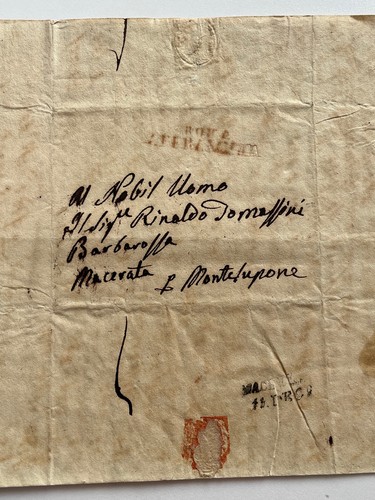 ROMA
Al Nobil Uomo
Il Sig.re Rinaldo Tomassini
Barbarossa
Macerata p Montelupone